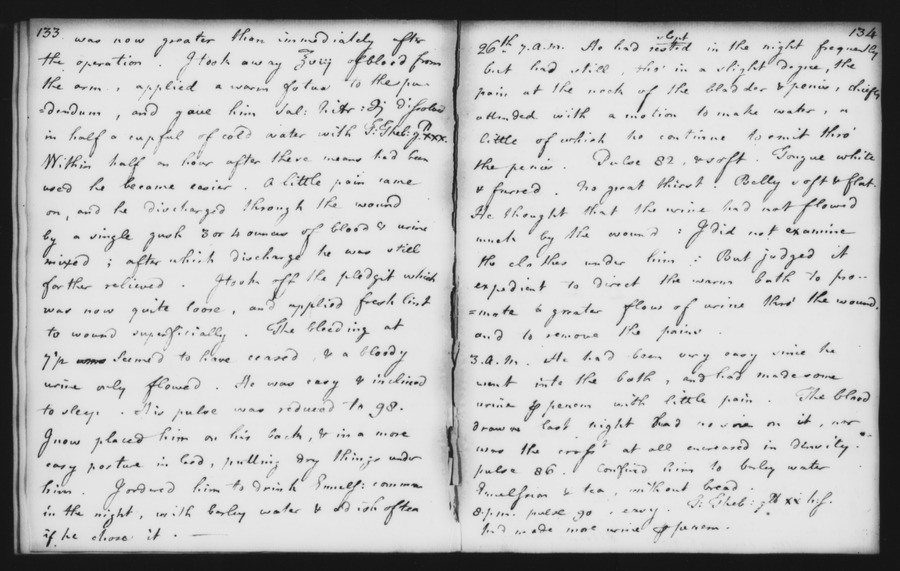 133
was now greater than immediately after
the operation. I took away ℥viij of blood from
the arm, applied a warm fotus to the pu-
-dendum, and gave him Sal: Nitr: ʒj dissolved
in half a cupful of cold water with T: Theb: gtt xxx.
Within half an hour after these means had been
used he became easier. A little pain came
on, and he discharged through the wound
by a single gush 3 or 4 ounces of blood & urine
mixed; after which discharge he was still
farther relieved. I took off the pledgit which
was now quite loose, and applied fresh lint
to wound superficially. The bleeding at
7 p seemed to have ceased, & a bloody
urine only flowed. He was easy & inclined
to sleep. His pulse was reduced to 98.
I now placed him on his back, & in a more
easy posture in bed, putting dry things under
him. I ordered him to drink Emuls: comm
in the night, with barley water & a dish of tea
if he chose it. —
134
26th 7. a.m. He had slept in the night frequently
but had still, tho' in a slight degree, the
pain at the neck of the bladder & penis, chiefly
attended with a motion to make water, a
little of which he continue to emit thro'
the penis. Pulse 82, & soft. Tongue white
& furred. No great thirst. Belly soft & flat.
He thought that the urine had not flowed
much by the wound: I did not examine
the clothes under him: But judged it
expedient to direct the warm bath to pro-
=mote a greater flow of urine thro' the wound,
and to remove the pains.
3. a.m. He had been very easy since he
went into the bath, and had made some
urine p penem with little pain. The blood
drawn last night had no size on it, nor
was the crass: at all encreased in density.
pulse 86. Confined him to barley water
Emulsion & tea, without bread.
8. p.m. pulse 90. easy. T: Theb: gtt xx h.s.
had made more urine p penem.